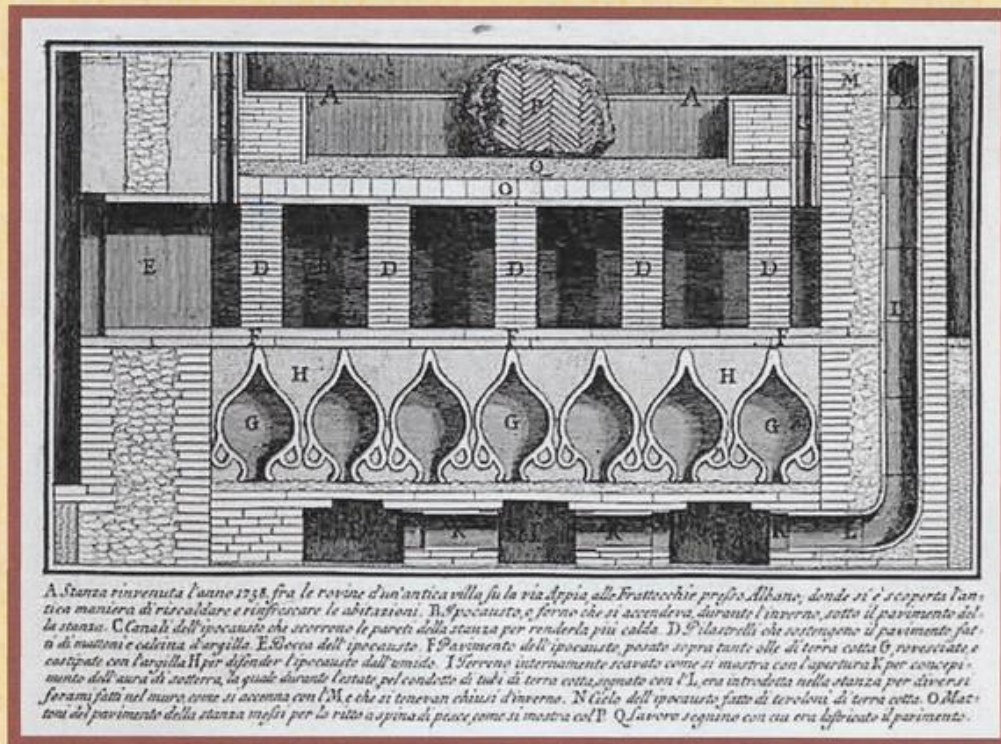 A A
P
Q
O
M
E D D D D D
F F F
H H
G G G
L
I K I K I K L
A Stanza rinvenuta l'anno 1758. fra le rovine d'un'antica villa su la via Appia, alle Frattocchie presso Albano, donde si è scoperta l'an=
tica maniera di riscaldare e rinfrescare le abitazioni. B. Ipocausto, o forno che si accendeva, durante l'inverno, sotto il pavimento del=
la stanza. C Canali dell'ipocausto che scorrono le pareti della stanza per renderla più calda. D Pilastrelli che sostengono il pavimento, fat=
ti di mattoni e calcina d'argilla. E Bocca dell'ipocausto. F Pavimento dell'ipocausto, posato sopra tante olle di terra cotta G, rovesciate, e
castipate con l'argilla H per difender l'ipocausto dall'umido. I Terreno internamente scavato come si mostra con l'apertura K per concepi=
mento dell'aura di sotterra, la quale durante l'estate, pel condotto di tubi di terra cotta, segnato con l'L, era introdotta nella stanza per diversi
forami fatti nel muro, come si accenna con l'M, e che si tenevan chiusi d'inverno. N Cielo dell'ipocausto fatto di tegoloni di terra cotta. O Mat=
toni del pavimento della stanza messi per lo ritto a spina di pesce, come si mostra col P. Q Lavoro segnino con cui era lastricato il pavimento.